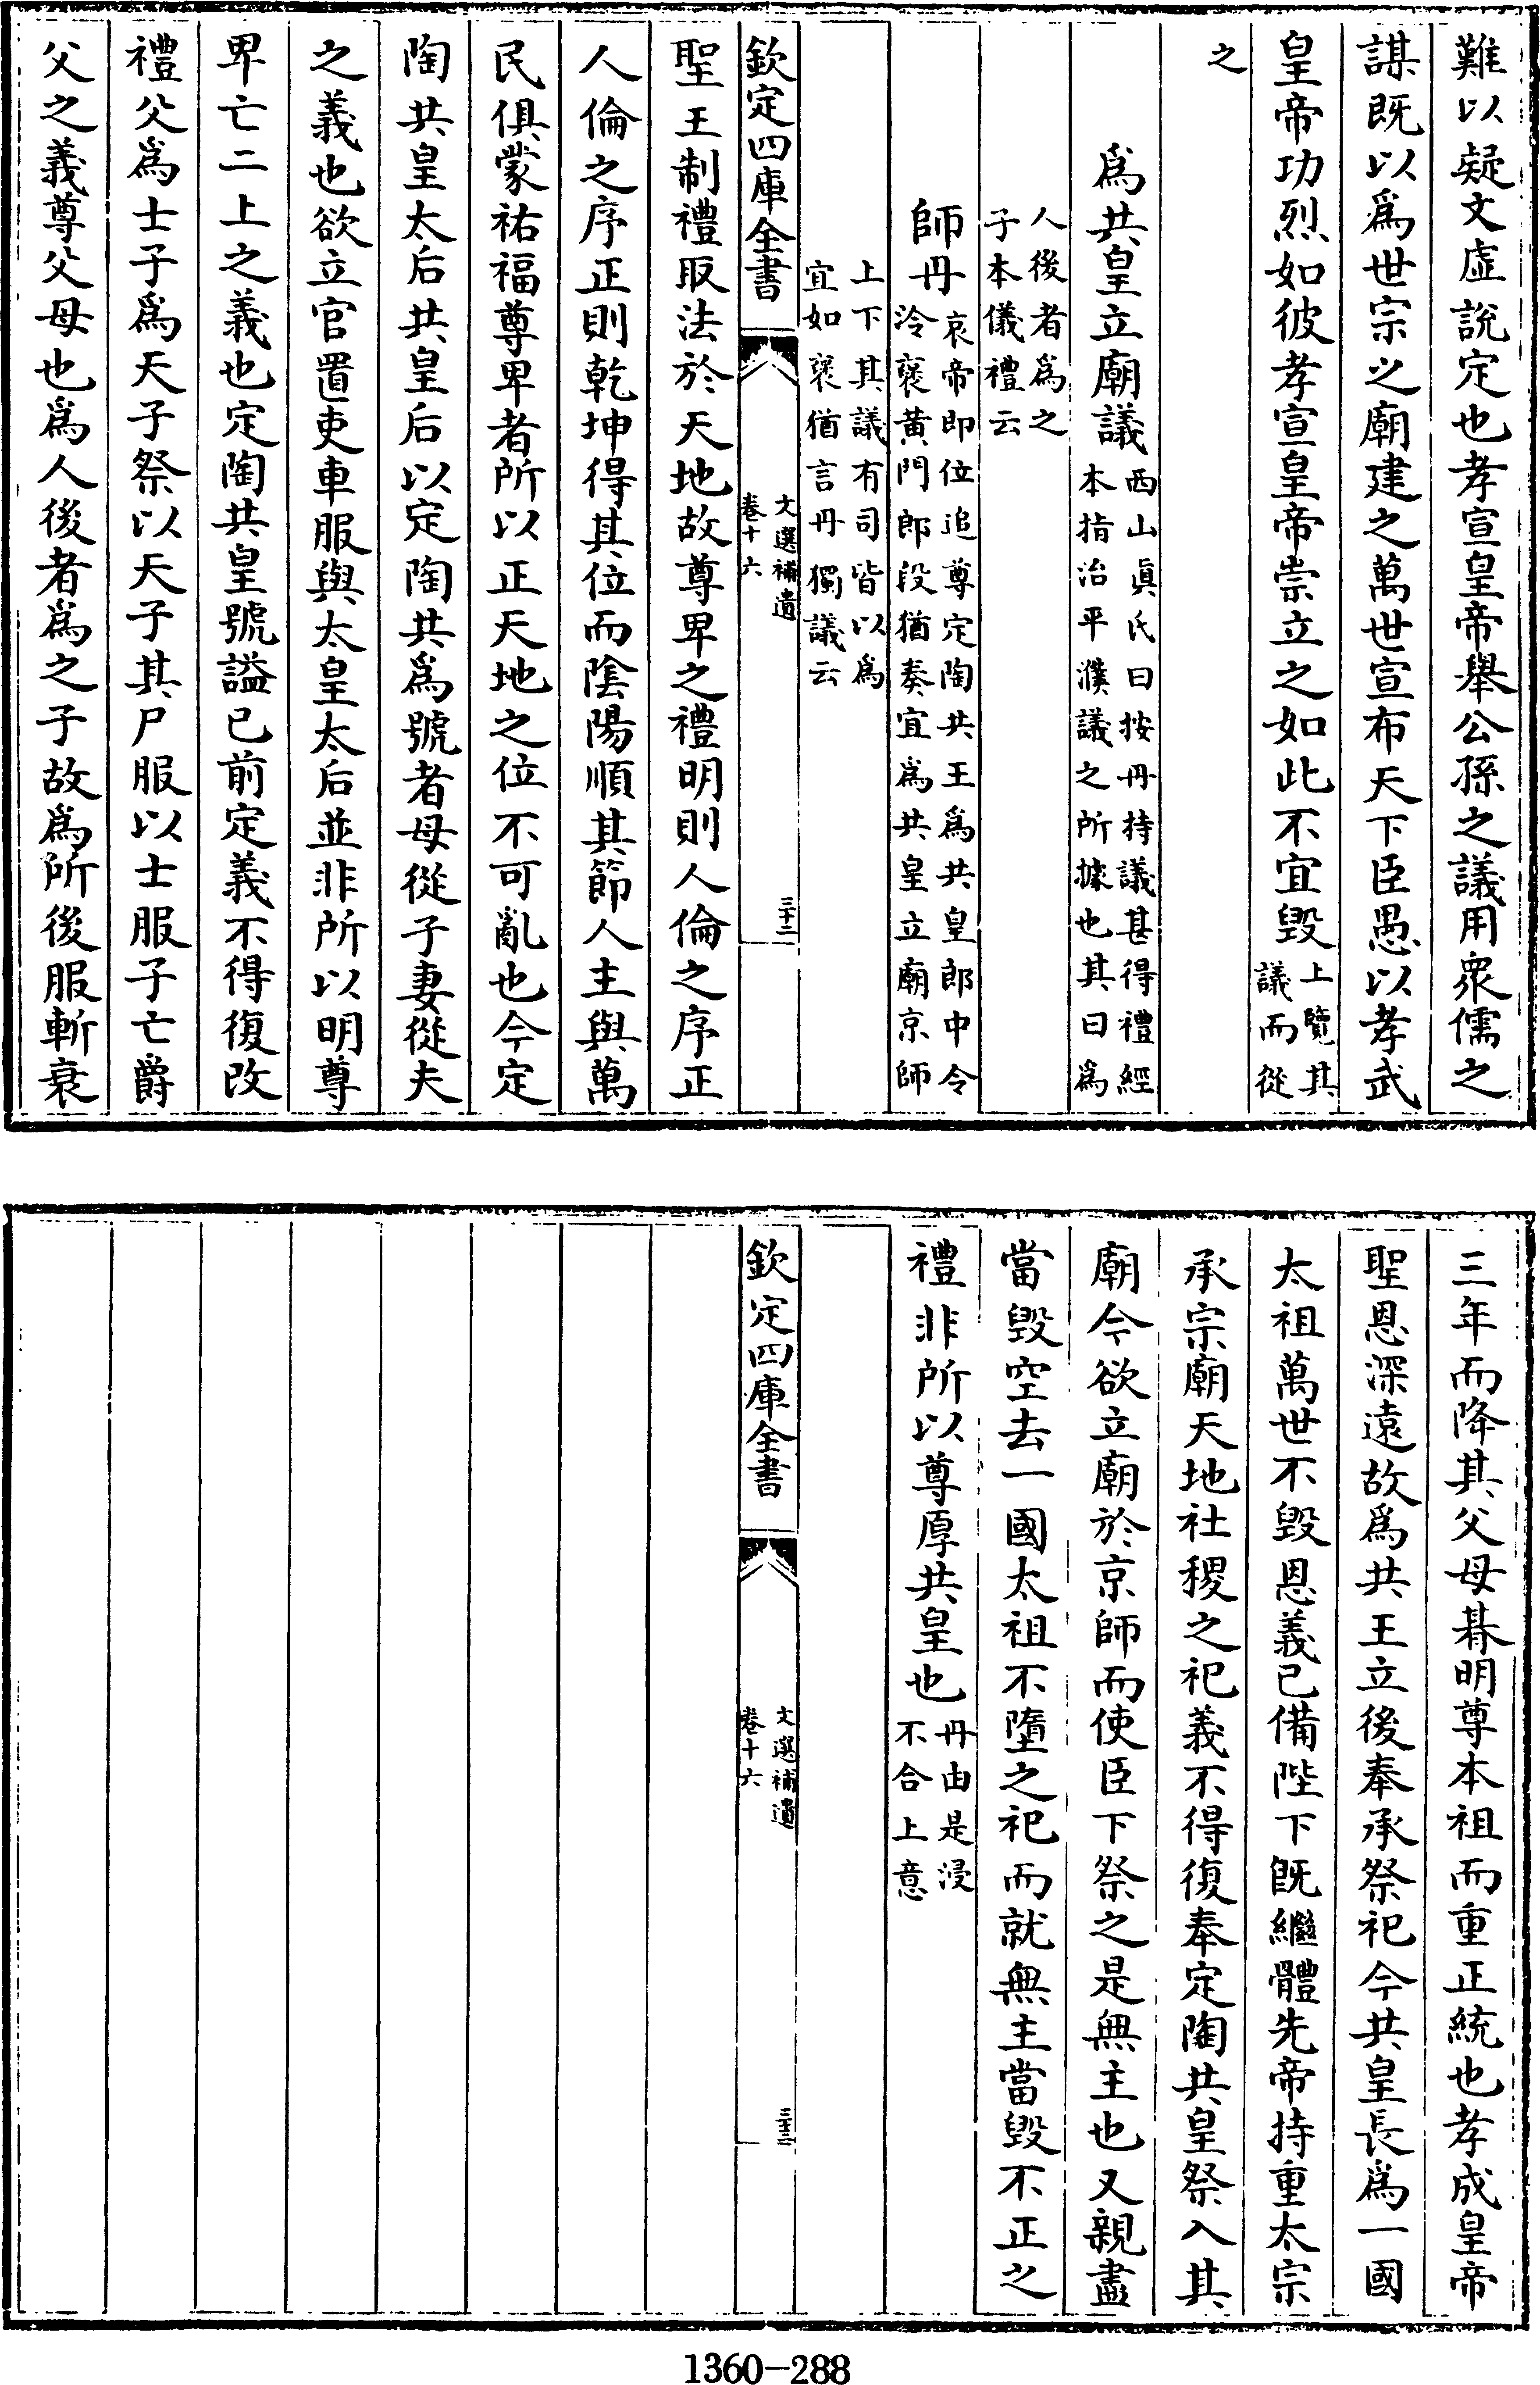 難以疑文虛說定也孝宣皇帝舉公孫之議用衆儒之
謀既以爲世宗之廟建之萬世宣布天下臣愚以孝武
皇帝功烈如彼孝宣皇帝崇立之如此不宜毀上覽其議而從
之
爲共皇立廟議西山眞氏曰按丹持議甚得禮經本指治平濮議之所據也其曰爲
人後者爲之子本儀禮云
師丹哀帝即位追尊定陶共王爲共皇郎中令泠襃黃門郎段猶奏宜爲共皇立廟京師
上下其議有司皆以爲宜如襃猶言丹獨議云
欽定四庫全書
文選補遺
卷十六
三十二
聖王制禮取法於天地故尊卑之禮明則人倫之序正
人倫之序正則乾坤得其位而陰陽順其節人主與萬
民俱蒙祐福尊卑者所以正天地之位不可亂也今定
陶共皇太后共皇后以定陶共爲號者母從子妻從夫
之義也欲立官置吏車服與太皇太后並非所以明尊
卑亡二上之義也定陶共皇號諡已前定義不得復改
禮父爲士子爲天子祭以天子其尸服以士服子亡爵
父之義尊父母也爲人後者爲之子故爲所後服斬衰
三年而降其父母朞明尊本祖而重正統也孝成皇帝
聖恩深遠故爲共王立後奉承祭祀今共皇長爲一國
太祖萬世不毀恩義已備陛下既繼體先帝持重太宗
承宗廟天地社稷之祀義不得復奉定陶共皇祭入其
廟今欲立廟於京師而使臣下祭之是無主也又親盡
當毀空去一國太祖不墮之祀而就無主當毀不正之
禮非所以尊厚共皇也丹由是浸不合上意
欽定四庫全書
文選補遺
卷十六
三十三
1360-288